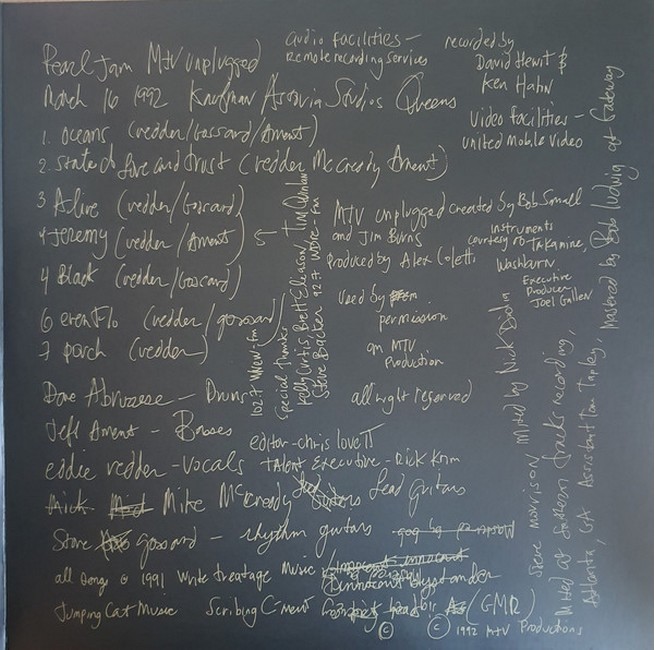 Pearl Jam MTV unplugged
March 16 1992 Kaufman Astoria Studios Queens
audio facilities –
Remote recording services
recorded by
David Hewit &
Ken Hahn
Video facilities –
united Mobile Video
1. Oceans (vedder/Gossard/Ament)
2. State of love and trust (vedder McCready Ament)
3 Alive (vedder/Gossard)
4 Jeremy (vedder/Ament)
4 Black (vedder/Goscard)
6 evenflo (vedder/gossard)
7 porch (vedder)
102.7 WNEW-fm
special thanks
Kelly Curtis, Brett Eliason, Tim
Steve Backer 92.7 WDRE-FM
MTV unplugged created by Bob Small
and Jim Burns
Produced by Alex Coletti
Instruments
courtesy of Takamine,
Washburn
Executive
Producer
Joel Gallen
Used by
permission
MTV
Production
all right reserved
Dave Abruzzese – Drums
Jeff Ament – Basses
eddie vedder – vocals
Mike McCready Lead guitars
Steve gossard – rhythm guitars
editor – chris lovett
TALENT Executive – Rick Krim
all songs © 1991 Write treatage Music
innocent Bystander
Jumping Cat Music Scribing C-ment (GMR)
© © 1992 MTV Productions
Steve Morrison Mixed by Nick
Mixed at Southern Tracks recording,
Atlanta, GA Assistant Tom Tapley,
Mastered by Bob Ludwig at Gateway